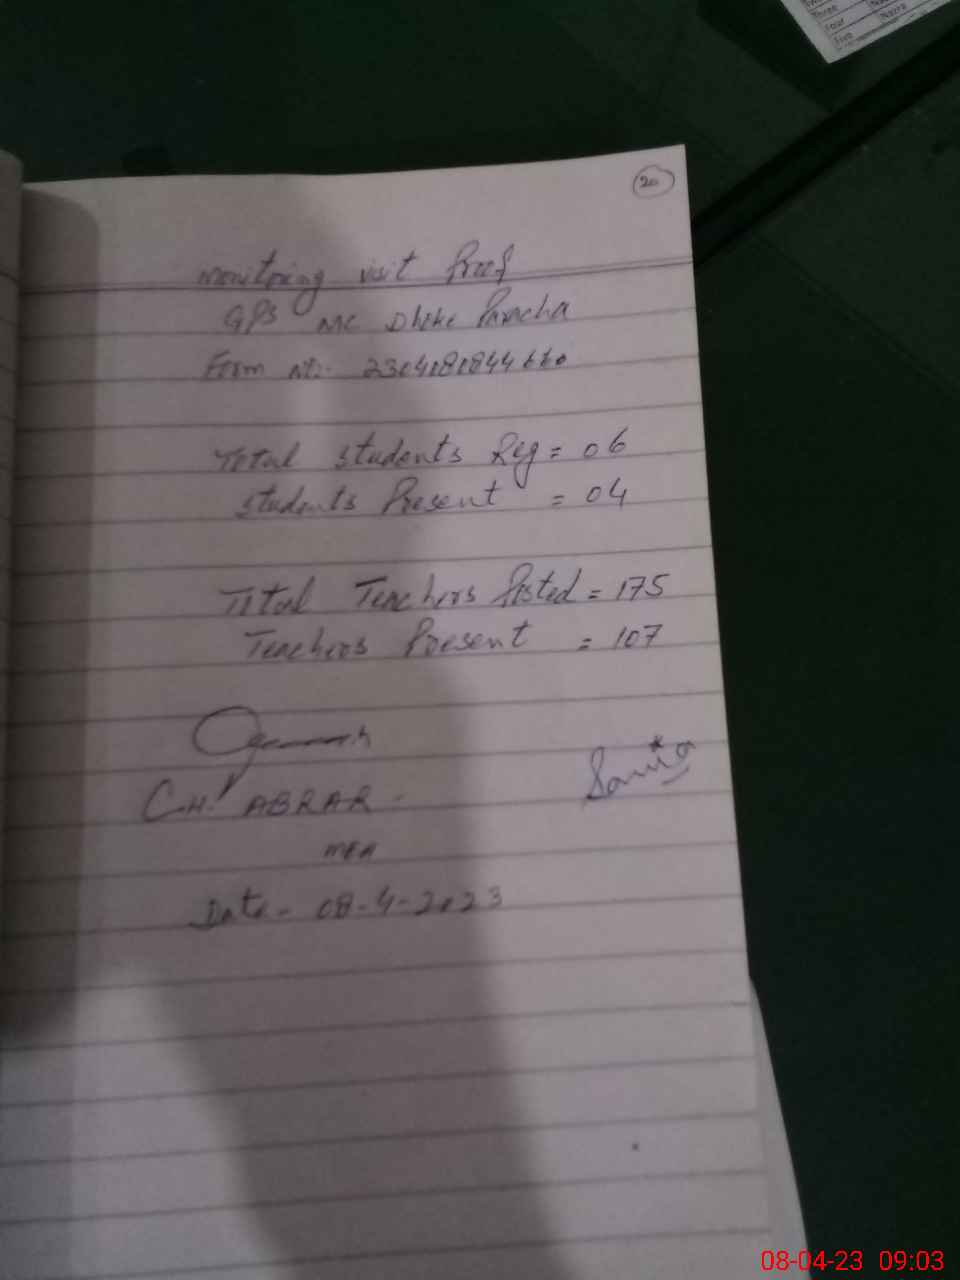 Three
Four
Five
Nazra
20
Monitoring visit Proof
GPS MC Dhoke Paracha
Form No:- 230408084466
Total students Reg = 06
students Present = 04
Total Teachers Posted = 175
Teachers Present = 107
CH. ABRAR
Sania
MEA
Date - 08-4-2023
08-04-23 09:03